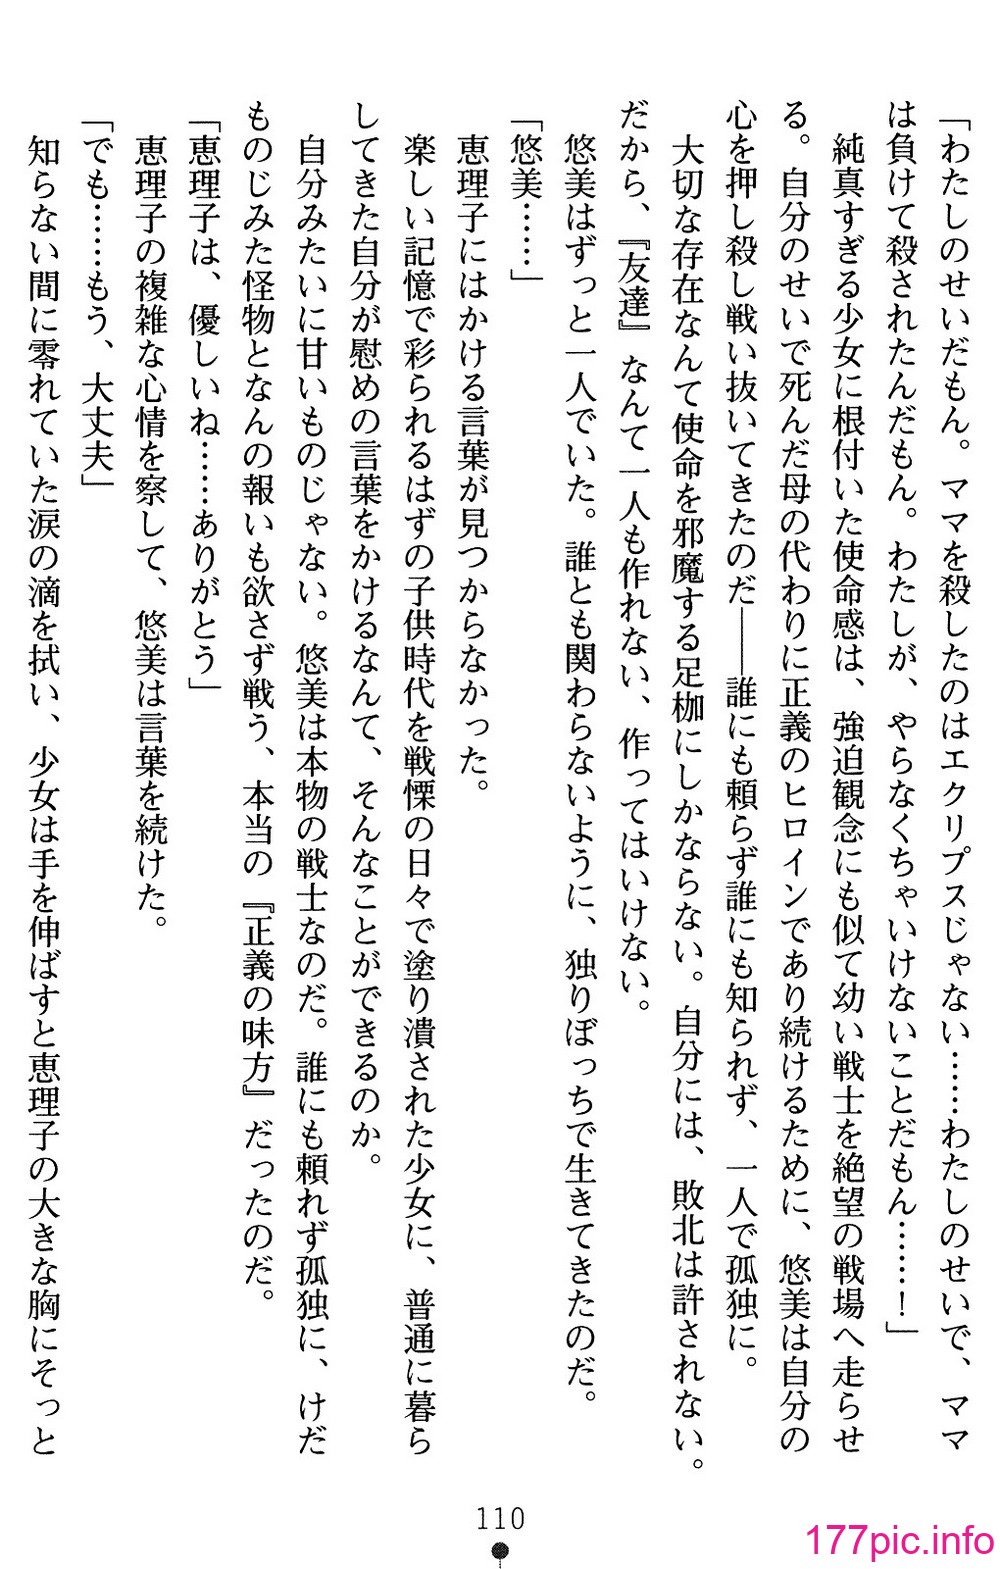 「わたしのせいだもん。ママを殺したのはエクリプスじゃない……わたしのせいで、ママ
は負けて殺されたんだもん。わたしが、やらなくちゃいけないことだもん……！」
純真すぎる少女に根付いた使命感は、強迫観念にも似て幼い戦士を絶望の戦場へ走らせ
る。自分のせいで死んだ母の代わりに正義のヒロインであり続けるために、悠美は自分の
心を押し殺し戦い抜いてきたのだ――誰にも頼らず誰にも知られず、一人で孤独に。
大切な存在なんて使命を邪魔する足枷にしかならない。自分には、敗北は許されない。
だから、『友達』なんて一人も作れない、作ってはいけない。
悠美はずっと一人でいた。誰とも関わらないように、独りぼっちで生きてきたのだ。
「悠美……」
恵理子にはかける言葉が見つからなかった。
楽しい記憶で彩られるはずの子供時代を戦慄の日々で塗り潰された少女に、普通に暮ら
してきた自分が慰めの言葉をかけるなんて、そんなことができるのか。
自分みたいに甘いものじゃない。悠美は本物の戦士なのだ。誰にも頼れず孤独に、けだ
ものじみた怪物となんの報いも欲さず戦う、本当の『正義の味方』だったのだ。
「恵理子は、優しいね……ありがとう」
恵理子の複雑な心情を察して、悠美は言葉を続けた。
「でも……もう、大丈夫」
知らない間に零れていた涙の滴を拭い、少女は手を伸ばすと恵理子の大きな胸にそっと
110
177pic.info